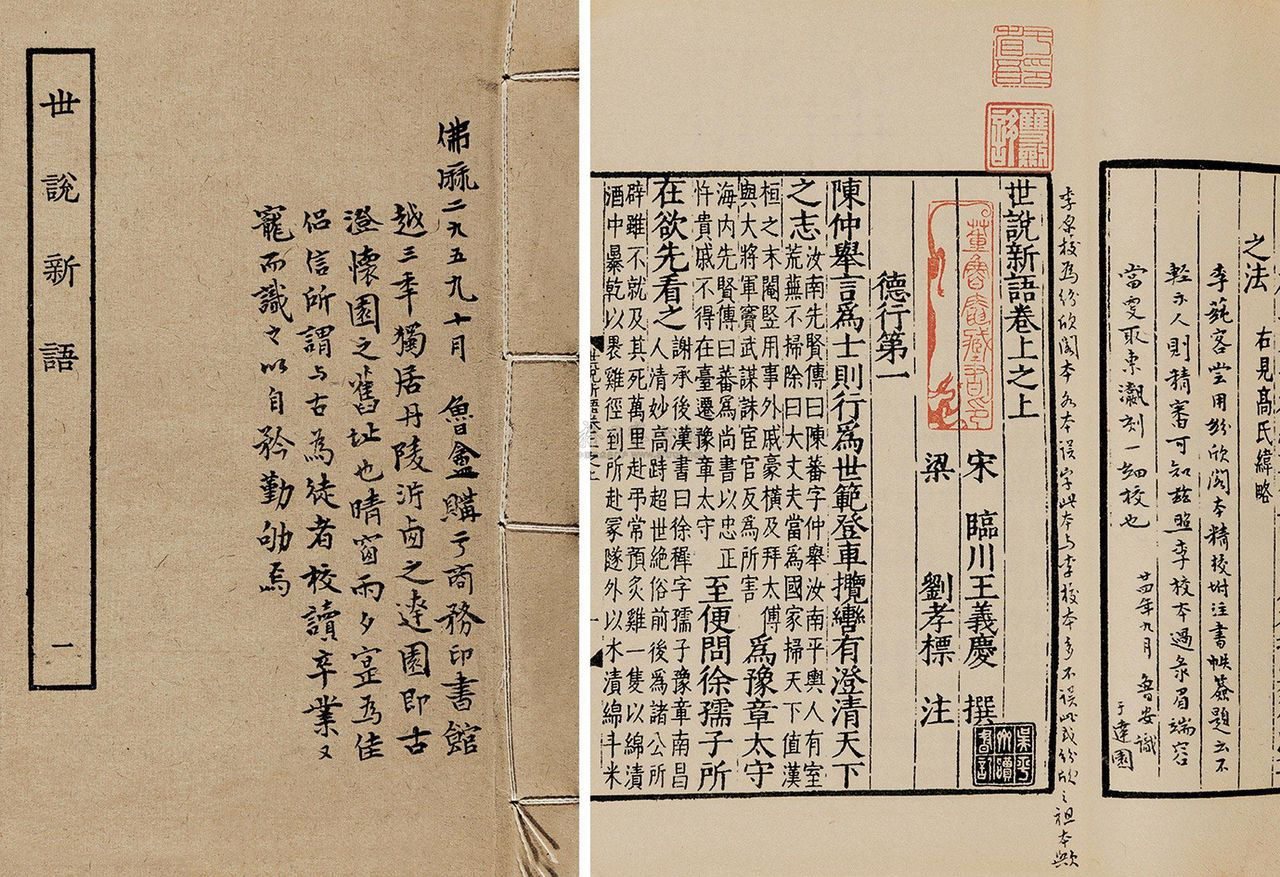 世說新語 一
佛厤二九五九十月 魯盦購于商務印書館
越三年獨居丹陵沜卤之達園即古
澄懷園之舊址也晴窗雨夕寔為佳
侶信所謂与古為徒者校讀卒業又
寵而識之以自矜勤劬焉
之法 右見高氏緯略
李蒓客嘗用紛欣閣本精校坿注書帙簽題云不
輕示人則精審可知茲照李校本過彔眉端容
當更取袁刻一細校也
廿四年九月 魯安識
于達園
李校為紛欣閣本本誤字此本与李校本多不誤此或紛欣之祖本歟
世說新語卷上之上
宋 臨川王義慶 撰
梁 劉孝標 注
德行第一
陳仲舉言為士則行為世範登車攬轡有澄清天下
之志
汝南先賢傳曰陳蕃字仲舉汝南平輿人有室
荒蕪不掃除曰大丈夫當為國家掃天下值漢
桓之末閹豎用事外戚豪橫及拜太傅
與大將軍竇武謀誅宦官反為所害
為豫章太守
海內先賢傳曰蕃為尚書以忠正
忤貴戚不得在臺遷豫章太守
至便問徐孺子所
在欲先看之
謝承後漢書曰徐穉字孺子豫章南昌
人清妙高跱超世絕俗前後為諸公所
辟雖不就及其死萬里赴弔常預炙雞一隻以綿漬
酒中暴乾以裹雞徑到所赴冢隧外以水漬綿斗米